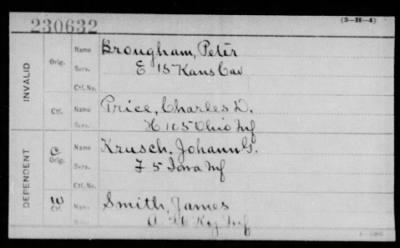 230632 (3-H-4)
INVALID
Orig. Name Brougham, Peter
Serv. E 15 Kans Cav
Ctf. No.
Ctf. Name Price, Charles D.
H 105 Ohio Inf
DEPENDENT
C Orig. Name Krusch, Johann G.
Serv. F 5 Iowa Inf
Ctf. No.
W Ctf. Name Smith, James
Ky Inf